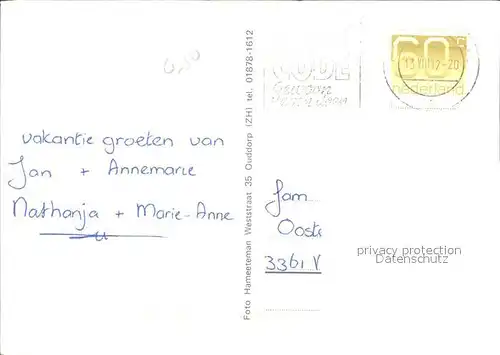 0,50
CODE
gewoon
60 c
nederland
13 VIII 12-20
vakantie groeten van
Jan + Annemarie
Nathanja + Marie-Anne
Foto Hameeteman Weststraat 35 Ouddorp (ZH) tel. 01878-1612
Fam
Ooste
3361 V
privacy protection
Datenschutz